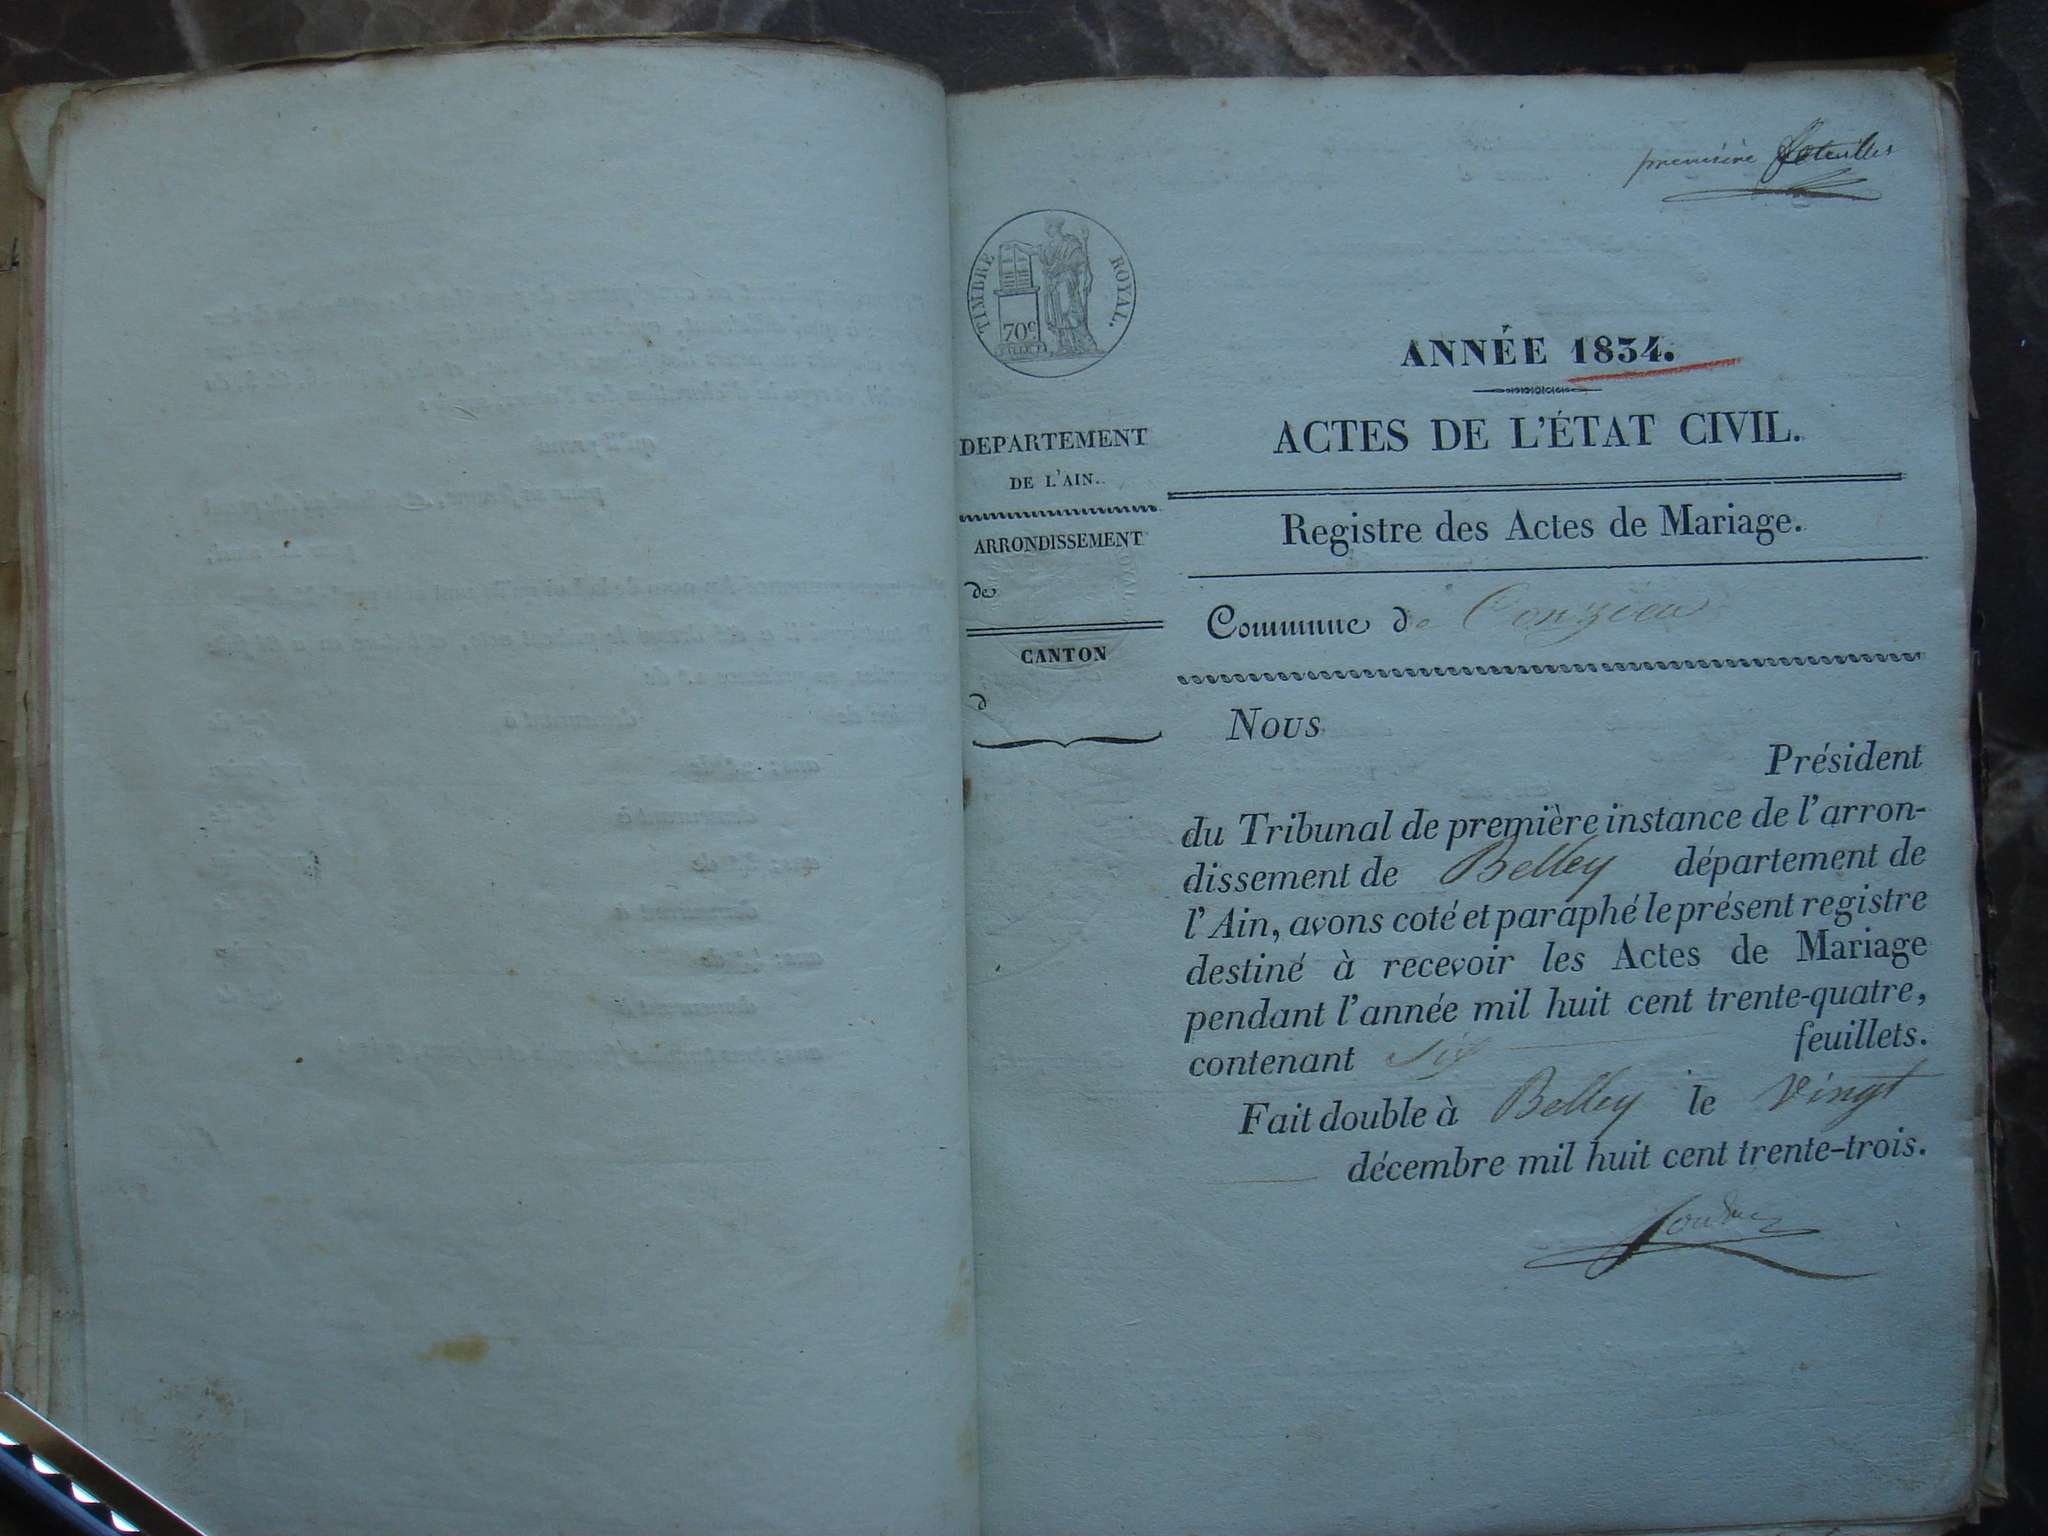 première
TIMBRE ROYAL.
70c
ANNÉE 1834.
ACTES DE L'ÉTAT CIVIL.
DEPARTEMENT
DE L'AIN.
ARRONDISSEMENT
de
CANTON
d
Registre des Actes de Mariage.
Commune de Conzieu
Nous
Président
du Tribunal de première instance de l'arron-
dissement de Belley département de
l'Ain, avons coté et paraphé le présent registre
destiné à recevoir les Actes de Mariage
pendant l'année mil huit cent trente-quatre,
contenant six feuillets.
Fait double à Belley le vingt
décembre mil huit cent trente-trois.